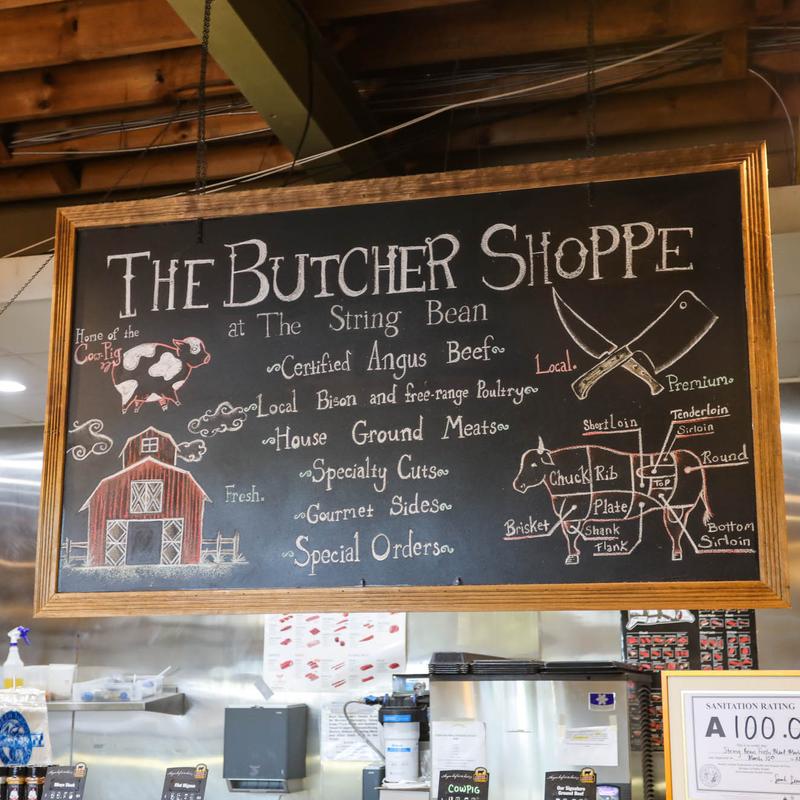 THE BUTCHER SHOPPE
at The String Bean
Home of the
Cow-Pig
Certified Angus Beef
Local Bison and free-range Poultry
House Ground Meats
Specialty Cuts
Gourmet Sides
Special Orders
Fresh.
Local.
Premium
Short Loin
Tenderloin
Sirloin
Round
Chuck
Rib
TOP
Plate
Brisket
Shank
Flank
Bottom
Sirloin
SANITATION RATING
A 100.0
COWPIG
Our Signature
Ground Beef